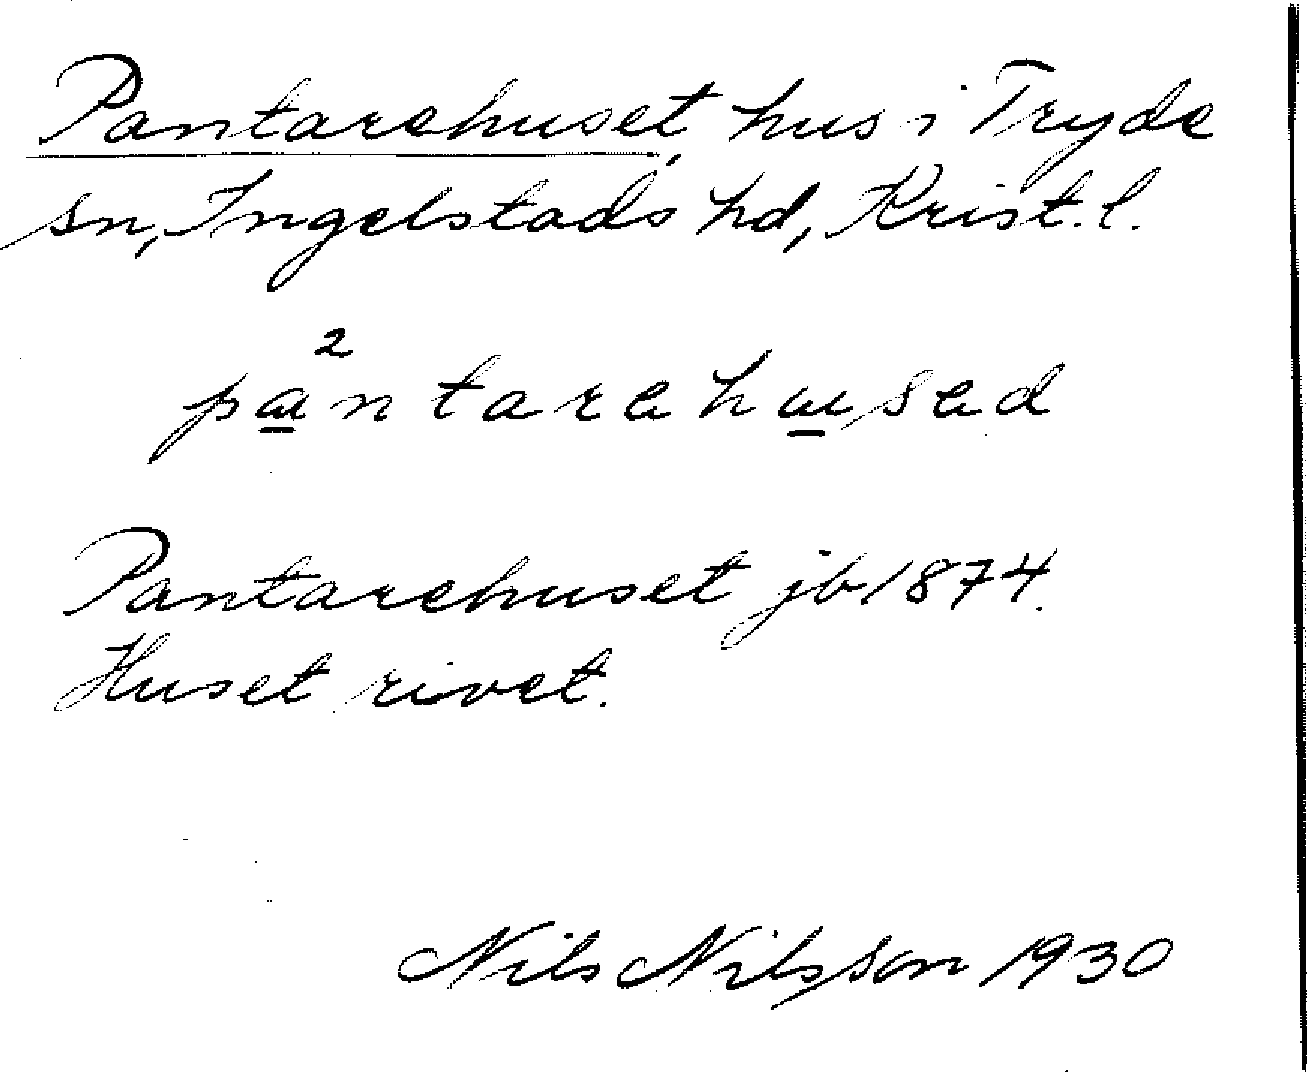 Pantarehuset, hus i Tryde
sn, Ingelstads hd, Krist. l.
pa²ntarehused
Pantarehuset jb 1874.
Huset rivet.
Nils Nilsson 1930